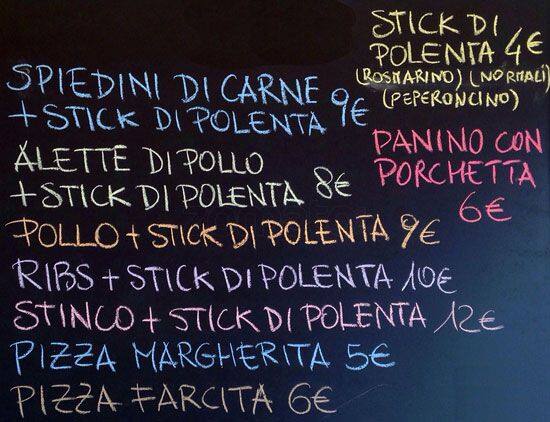 STICK DI
POLENTA 4€
(ROSMARINO) (NORMALI)
(PEPERONCINO)
SPIEDINI DI CARNE
+ STICK DI POLENTA 9€
ALETTE DI POLLO
+ STICK DI POLENTA 8€
PANINO CON
PORCHETTA
6€
POLLO + STICK DI POLENTA 9€
RIBS + STICK DI POLENTA 10€
STINCO + STICK DI POLENTA 12€
PIZZA MARGHERITA 5€
PIZZA FARCITA 6€